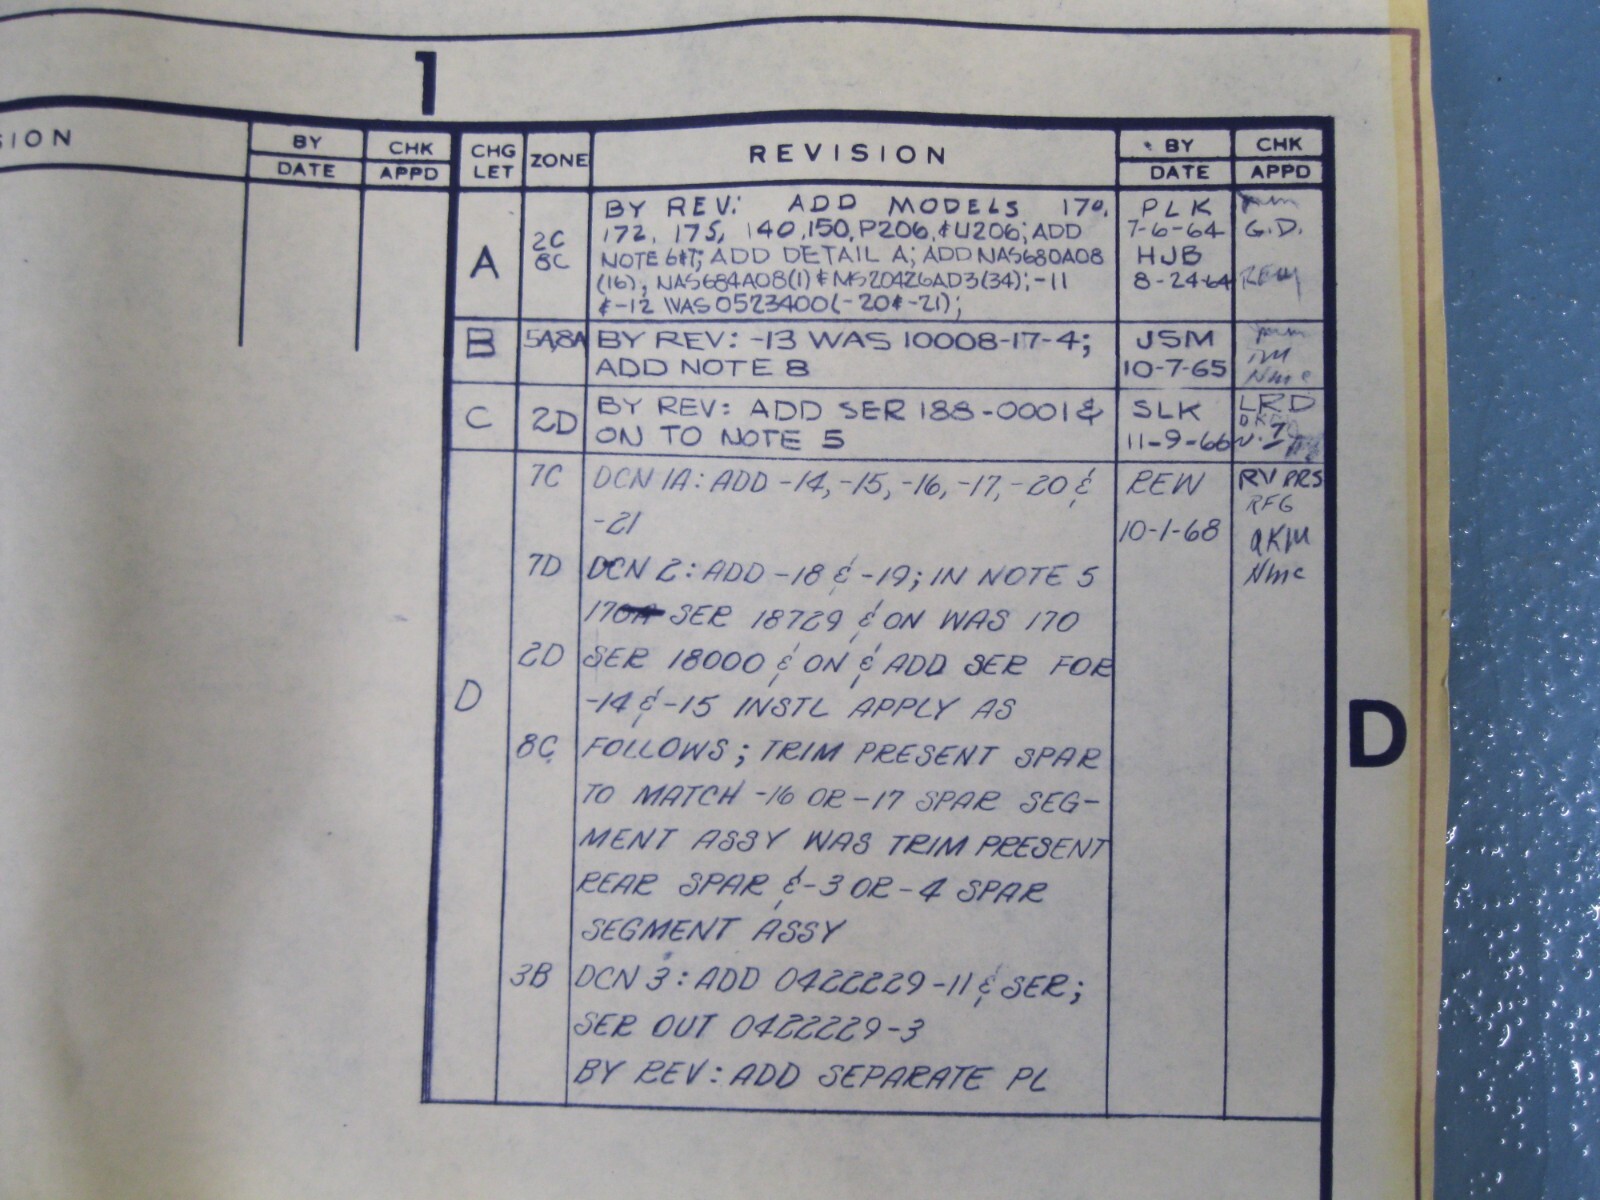 1
SION
BY
DATE
CHK
APPD
CHG
LET
ZONE
REVISION
BY
DATE
CHK
APPD
A
2C
8C
BY REV: ADD MODELS 170,
172, 175, 140, 150, P206, & U206; ADD
NOTE 6&7; ADD DETAIL A; ADD NAS680A08
(16), NAS684A08(1) & MS20426AD3(34); -11
& -12 WAS 0523400(-20&-21);
PLK
7-6-64
HJB
8-24-64
G.D.
B
5A,8A
BY REV: -13 WAS 10008-17-4;
ADD NOTE 8
JSM
10-7-65
Nmc
C
2D
BY REV: ADD SER 188-0001 &
ON TO NOTE 5
SLK
11-9-66
LRD
D
7C
DCN 1A: ADD -14, -15, -16, -17, -20 &
-21
REW
10-1-68
RV PRS
RFG
Nmc
7D
DCN 2: ADD -18 & -19; IN NOTE 5
170 SER 18729 & ON WAS 170
2D
SER 18000 & ON & ADD SER FOR
-14 & -15 INSTL APPLY AS
8C
FOLLOWS; TRIM PRESENT SPAR
TO MATCH -16 OR -17 SPAR SEG-
MENT ASSY WAS TRIM PRESENT
REAR SPAR & -3 OR -4 SPAR
SEGMENT ASSY
3B
DCN 3: ADD 0422229-11 & SER;
SER OUT 0422229-3
BY REV: ADD SEPARATE PL
D